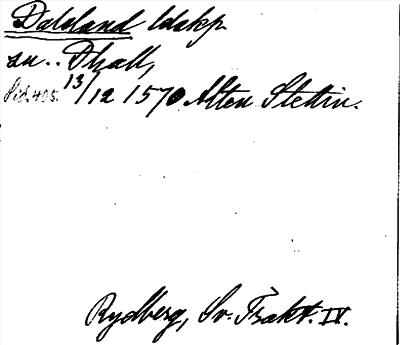 Dalsland ldskp
su.. Dhall,
Sid. 405. 13/12 1570 Alten Stettin.
Rydberg, Sv. Trakt. IV.